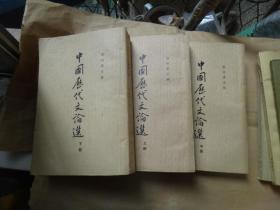 中國歷代文論選
下册
中國歷代文論選
上册
中國歷代文論選
中册